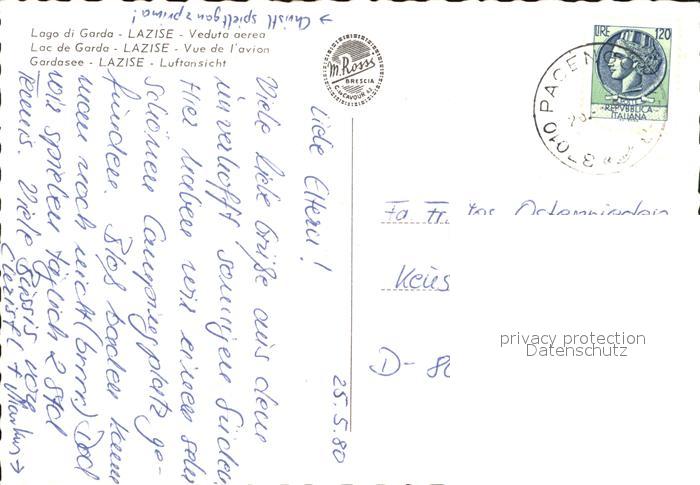 → Christl spielt ganz prima!
Lago di Garda - LAZISE - Veduta aerea
Lac de Garda - LAZISE - Vue de l'avion
Gardasee - LAZISE - Luftansicht
M. Rossi
BRESCIA
C. so CAVOUR 42
LIRE 120
REPVBBLICA
ITALIANA
37010 PACEN
25.5.80
Liebe Eltern!
Viele liebe Grüße aus dem
unverhofft sonnigen Süden.
Hier haben wir einen sehr
schönen Campingplatz ge-
funden. Bloß baden kann
man noch nicht (brrr.) Dod
wir spielen täglich 2 Std
Tennis. Viele Bussis von
Christl + Markus →
Fa Fr.
D- 80
privacy protection
Datenschutz